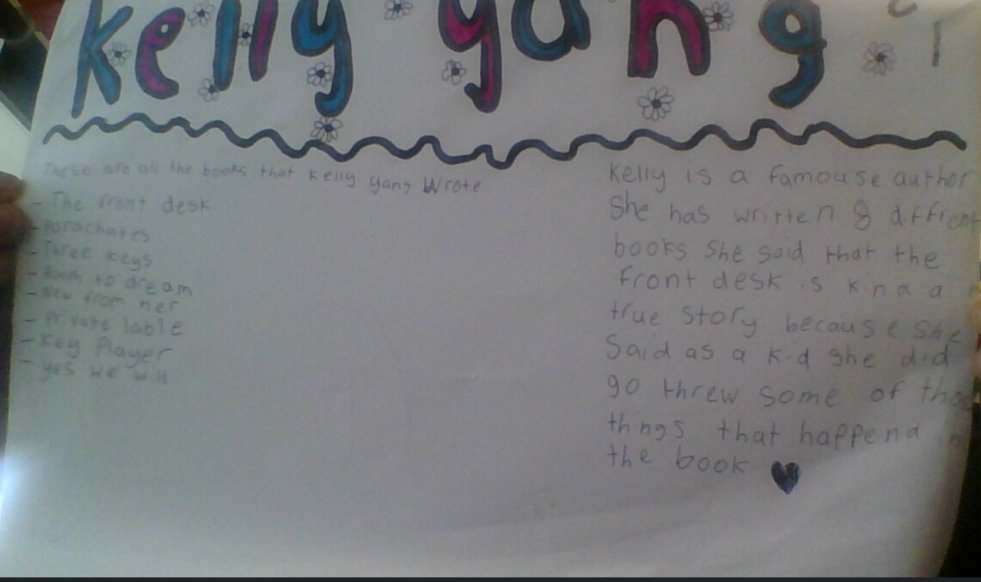 kelly yang
These are all the books that kelly yang Wrote
- The front desk
- Parachates
- Three keys
- Room to dream
- New from her
- Private lable
- Key Player
- yes we will
Kelly is a famouse author
She has written 8 dffrent
books She said that the
Front desk is knda a
true story because she
Said as a kid she did
go threw some of those
thngs that happend in
the book